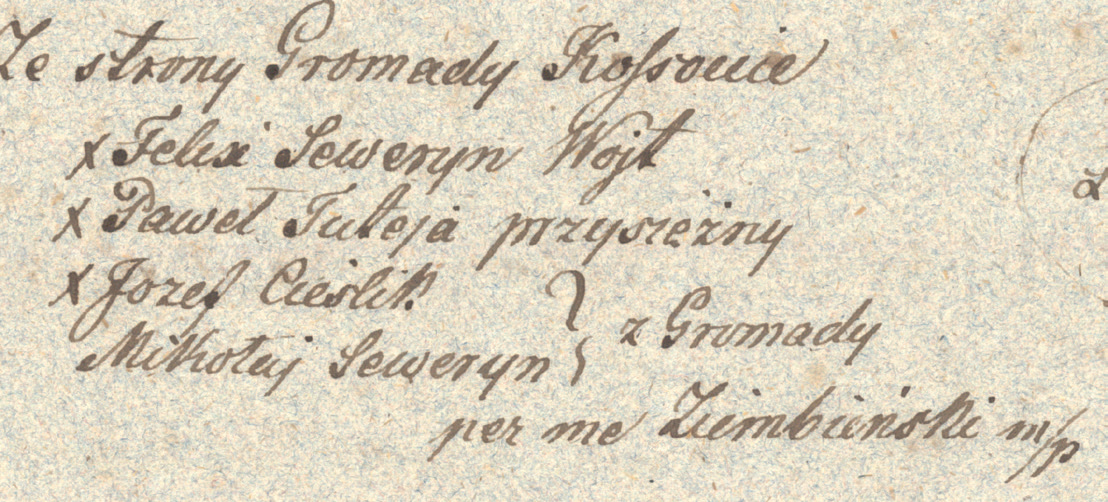 Ze strony Gromady Kossowie
x Felix Seweryn Wojt
x Paweł Tuteja przysiężny
x Jozef Cieslik
Mikołaj Seweryn } z Gromady
per me Ziembiński m/p